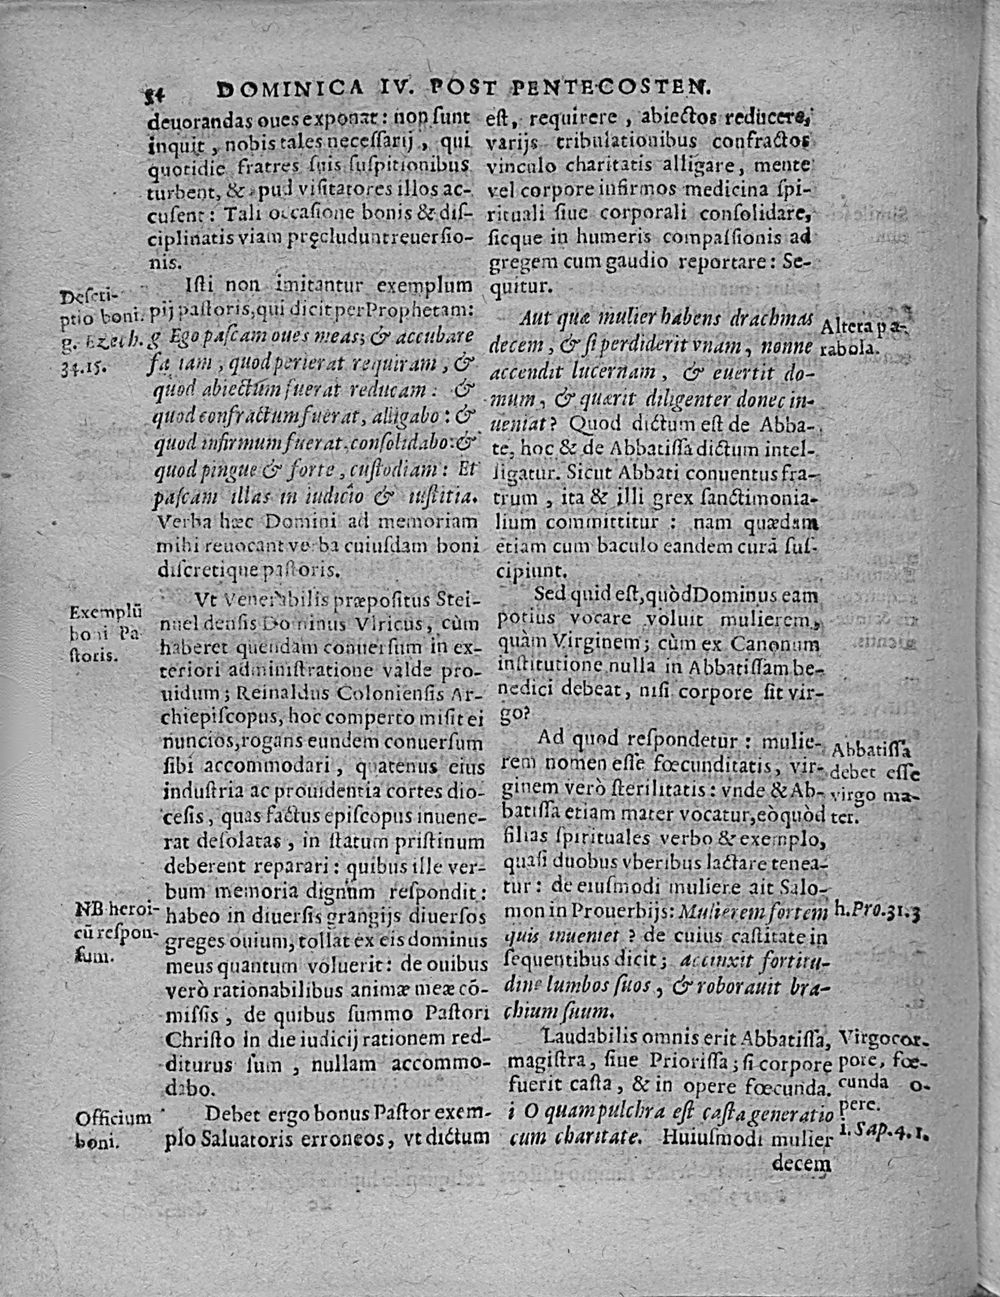 54 DOMINICA IV. POST PENTECOSTEN.
deuorandas oues exponat: non sunt
inquit, nobis tales necessarij, qui
quotidie fratres suis suspitionibus
turbent, & apud visitatores illos ac-
cusent: Tali occasione bonis & dis-
ciplinatis viam pręcludunt reuersio-
nis.
Isti non imitantur exemplum
pij pastoris, qui dicit per Prophetam:
g Ego pascam oues meas; & accubare
faciam, quod perierat requiram, &
quod abiectum fuerat reducam: &
quod confractum fuerat, alligabo: &
quod infirmum fuerat, consolidabo: &
quod pingue & forte, custodiam: Et
pascam illas in iudicio & iustitia.
Verba hæc Domini ad memoriam
mihi reuocant verba cuiusdam boni
discretique pastoris.
Vt Venerabilis præpositus Stei-
nueldensis Dominus Vlricus, cùm
haberet quendam conuersum in ex-
teriori administratione valde pro-
uidum; Reinaldus Coloniensis Ar-
chiepiscopus, hoc comperto misit ei
nuncios, rogans eundem conuersum
sibi accommodari, quatenus eius
industria ac prouidentia cortes dio-
cesis, quas factus episcopus inuene-
rat desolatas, in statum pristinum
deberent reparari: quibus ille ver-
bum memoria dignum respondit:
habeo in diuersis grangijs diuersos
greges ouium, tollat ex eis dominus
meus quantum voluerit: de ouibus
verò rationabilibus animæ meæ cō-
missis, de quibus summo Pastori
Christo in die iudicij rationem red-
diturus sum, nullam accommo-
dabo.
Debet ergo bonus Pastor exem-
plo Saluatoris erroneos, vt dictum
Descri-
ptio boni.
g. Ezech.
34.15.
Exemplū
boni Pa-
storis.
NB heroi-
cū respon-
sum.
Officium
boni.
est, requirere, abiectos reducere,
varijs tribulationibus confractos
vinculo charitatis alligare, mente
vel corpore infirmos medicina spi-
rituali siue corporali consolidare,
sicque in humeris compassionis ad
gregem cum gaudio reportare: Se-
quitur.
Aut quæ mulier habens drachmas
decem, & si perdiderit vnam, nonne
accendit lucernam, & euertit do-
mum, & quærit diligenter donec in-
ueniat? Quod dictum est de Abba-
te, hoc & de Abbatissa dictum intel-
ligatur. Sicut Abbati conuentus fra-
trum, ita & illi grex sanctimonia-
lium committitur: nam quædam
etiam cum baculo eandem curā sus-
cipiunt.
Sed quid est, quòd Dominus eam
potius vocare voluit mulierem,
quàm Virginem; cùm ex Canonum
institutione nulla in Abbatissam be-
nedici debeat, nisi corpore sit vir-
go?
Ad quod respondetur: mulie-
rem nomen esse fœcunditatis, vir-
ginem verò sterilitatis: vnde & Ab-
batissa etiam mater vocatur, eò quòd
filias spirituales verbo & exemplo,
quasi duobus vberibus lactare tenea-
tur: de eiusmodi muliere ait Salo-
mon in Prouerbijs: Mulierem fortem
quis inueniet? de cuius castitate in
sequentibus dicit; accinxit fortitu-
dine lumbos suos, & roborauit bra-
chium suum.
Laudabilis omnis erit Abbatissa,
magistra, siue Priorissa; si corpore
fuerit casta, & in opere fœcunda.
i O quam pulchra est casta generatio
cum charitate. Huiusmodi mulier
decem
Altera pa-
rabola.
Abbatissa
debet esse
virgo ma-
ter.
h. Pro. 31.3
Virgo cor-
pore, fœ-
cunda o-
pere.
i. Sap. 4.1.